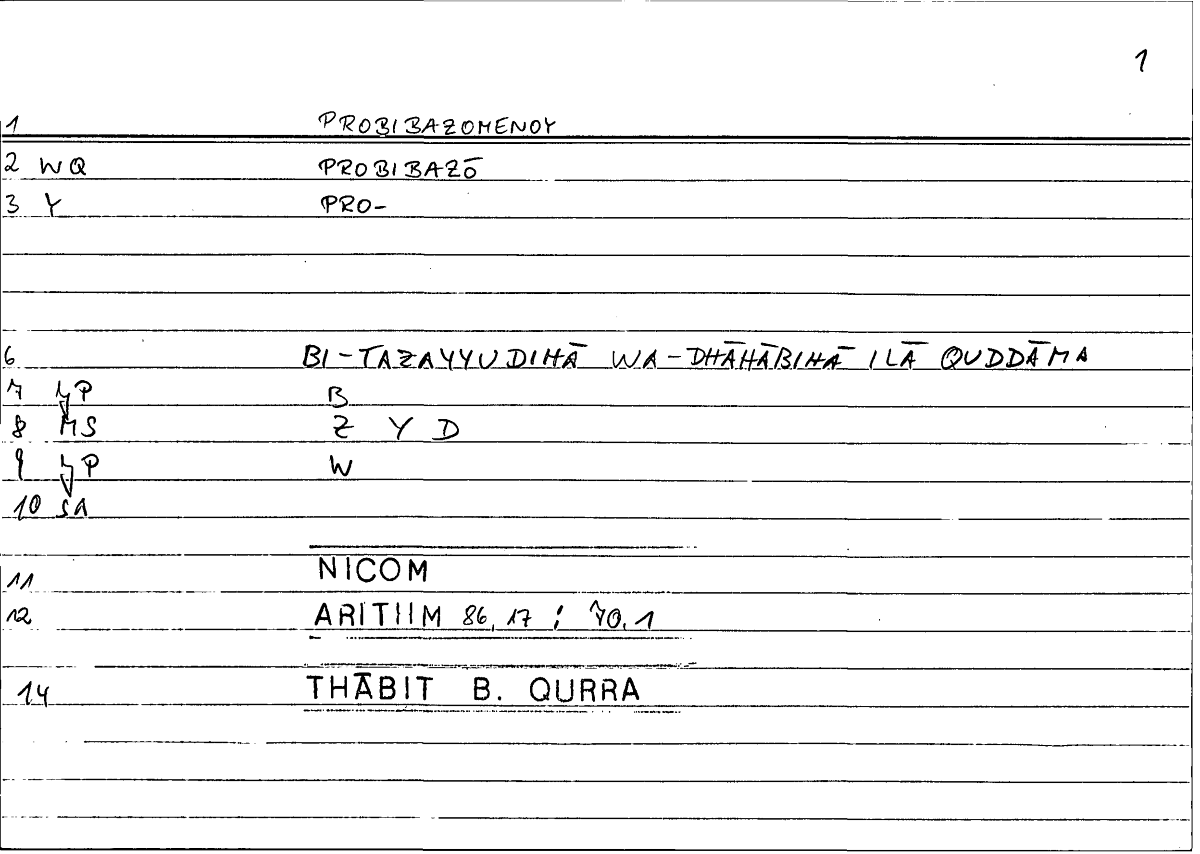 1
1 PROBIBAZOMENOY
2 WQ PROBIBAZŌ
3 Y PRO-
6 BI-TAZAYYUDIHĀ WA-DHĀHĀBIHĀ ILĀ QUDDĀMA
7 LP B
8 MS Z Y D
9 LP W
10 SA
11 NICOM
12 ARITIIM 86,17 ; 70.1
14 THĀBIT B. QURRA